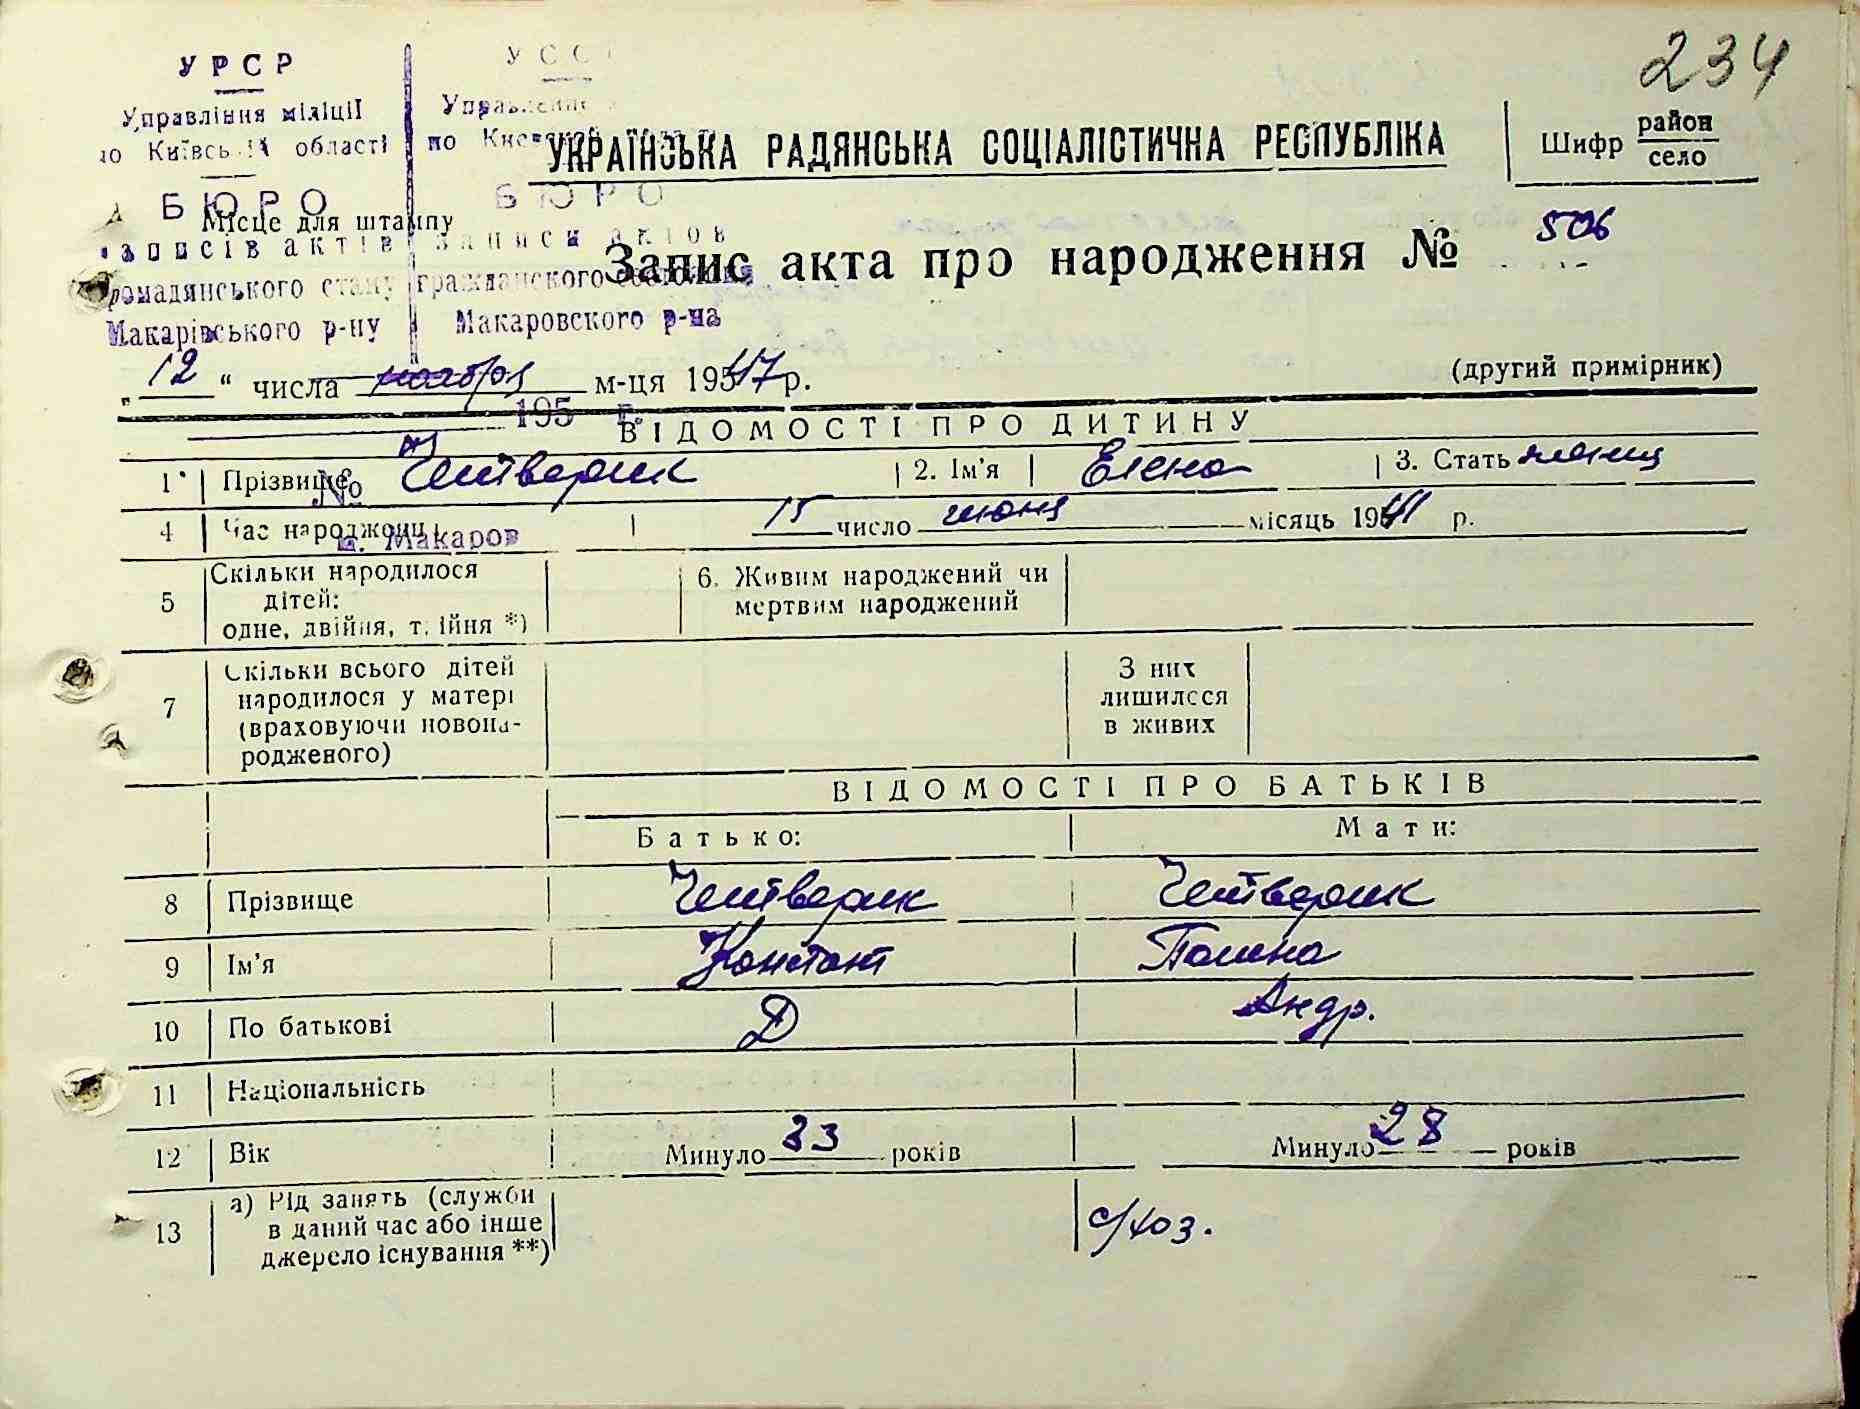 234
УРСР
УССР
Управління міліції
Управление
по Київській області
по Киевской
УКРАЇНСЬКА РАДЯНСЬКА СОЦІАЛІСТИЧНА РЕСПУБЛІКА
Шифр район
село
БЮРО
БЮРО
Місце для штампу
записів актів
записи актов
Запис акта про народження № 506
громадянського стану
гражданского состояния
Макарівського р-ну
Макаровского р-на
"12" числа ноября м-ця 1947 р.
(другий примірник)
195 г.
ВІДОМОСТІ ПРО ДИТИНУ
1 Прізвище Четверик 2. Ім'я Елена 3. Стать женщ
№
4 Час народження 15 число июня місяць 1941 р.
с. Макаров
5 Скільки народилося дітей: одне, двійня, трійня *)
6. Живим народжений чи мертвим народжений
7 Скільки всього дітей народилося у матері (враховуючи новонародженого)
З них лишилося в живих
ВІДОМОСТІ ПРО БАТЬКІВ
Батько: Мати:
8 Прізвище Четверик Четверик
9 Ім'я Констант Полина
10 По батькові Д Андр.
11 Національність
12 Вік Минуло 33 років Минуло 28 років
13 а) Рід занять (служби в даний час або інше джерело існування **) с/хоз.